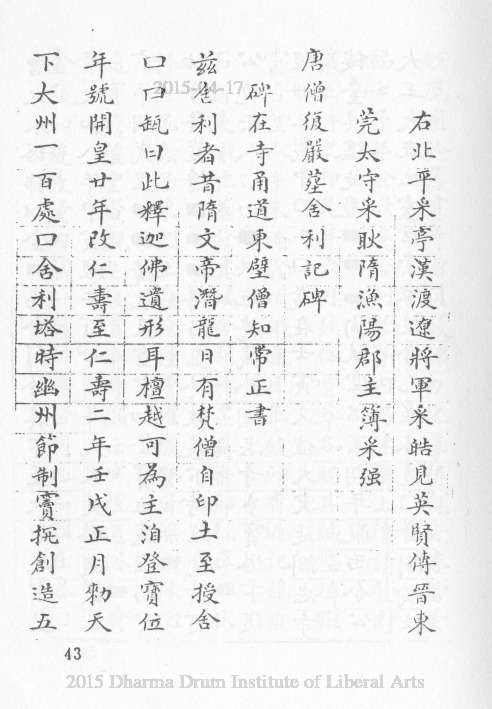 右北平采亭漢渡遼將軍采皓見英賢傳晉東
莞太守采耿隋漁陽郡主簿采强
唐僧復嚴塟舍利記碑
碑在寺甬道東壁僧知常正書
茲舍利者昔隋文帝潛龍日有梵僧自印土至授舍
口曰㼝以此釋迦佛遺形耳檀越可為主洎登寶位
年號開皇廿年改仁壽至仁壽二年壬戌正月勑天
下大州一百處口舍利塔時幽州節制竇撰創造五
43
2015-04-17
2015 Dharma Drum Institute of Liberal Arts